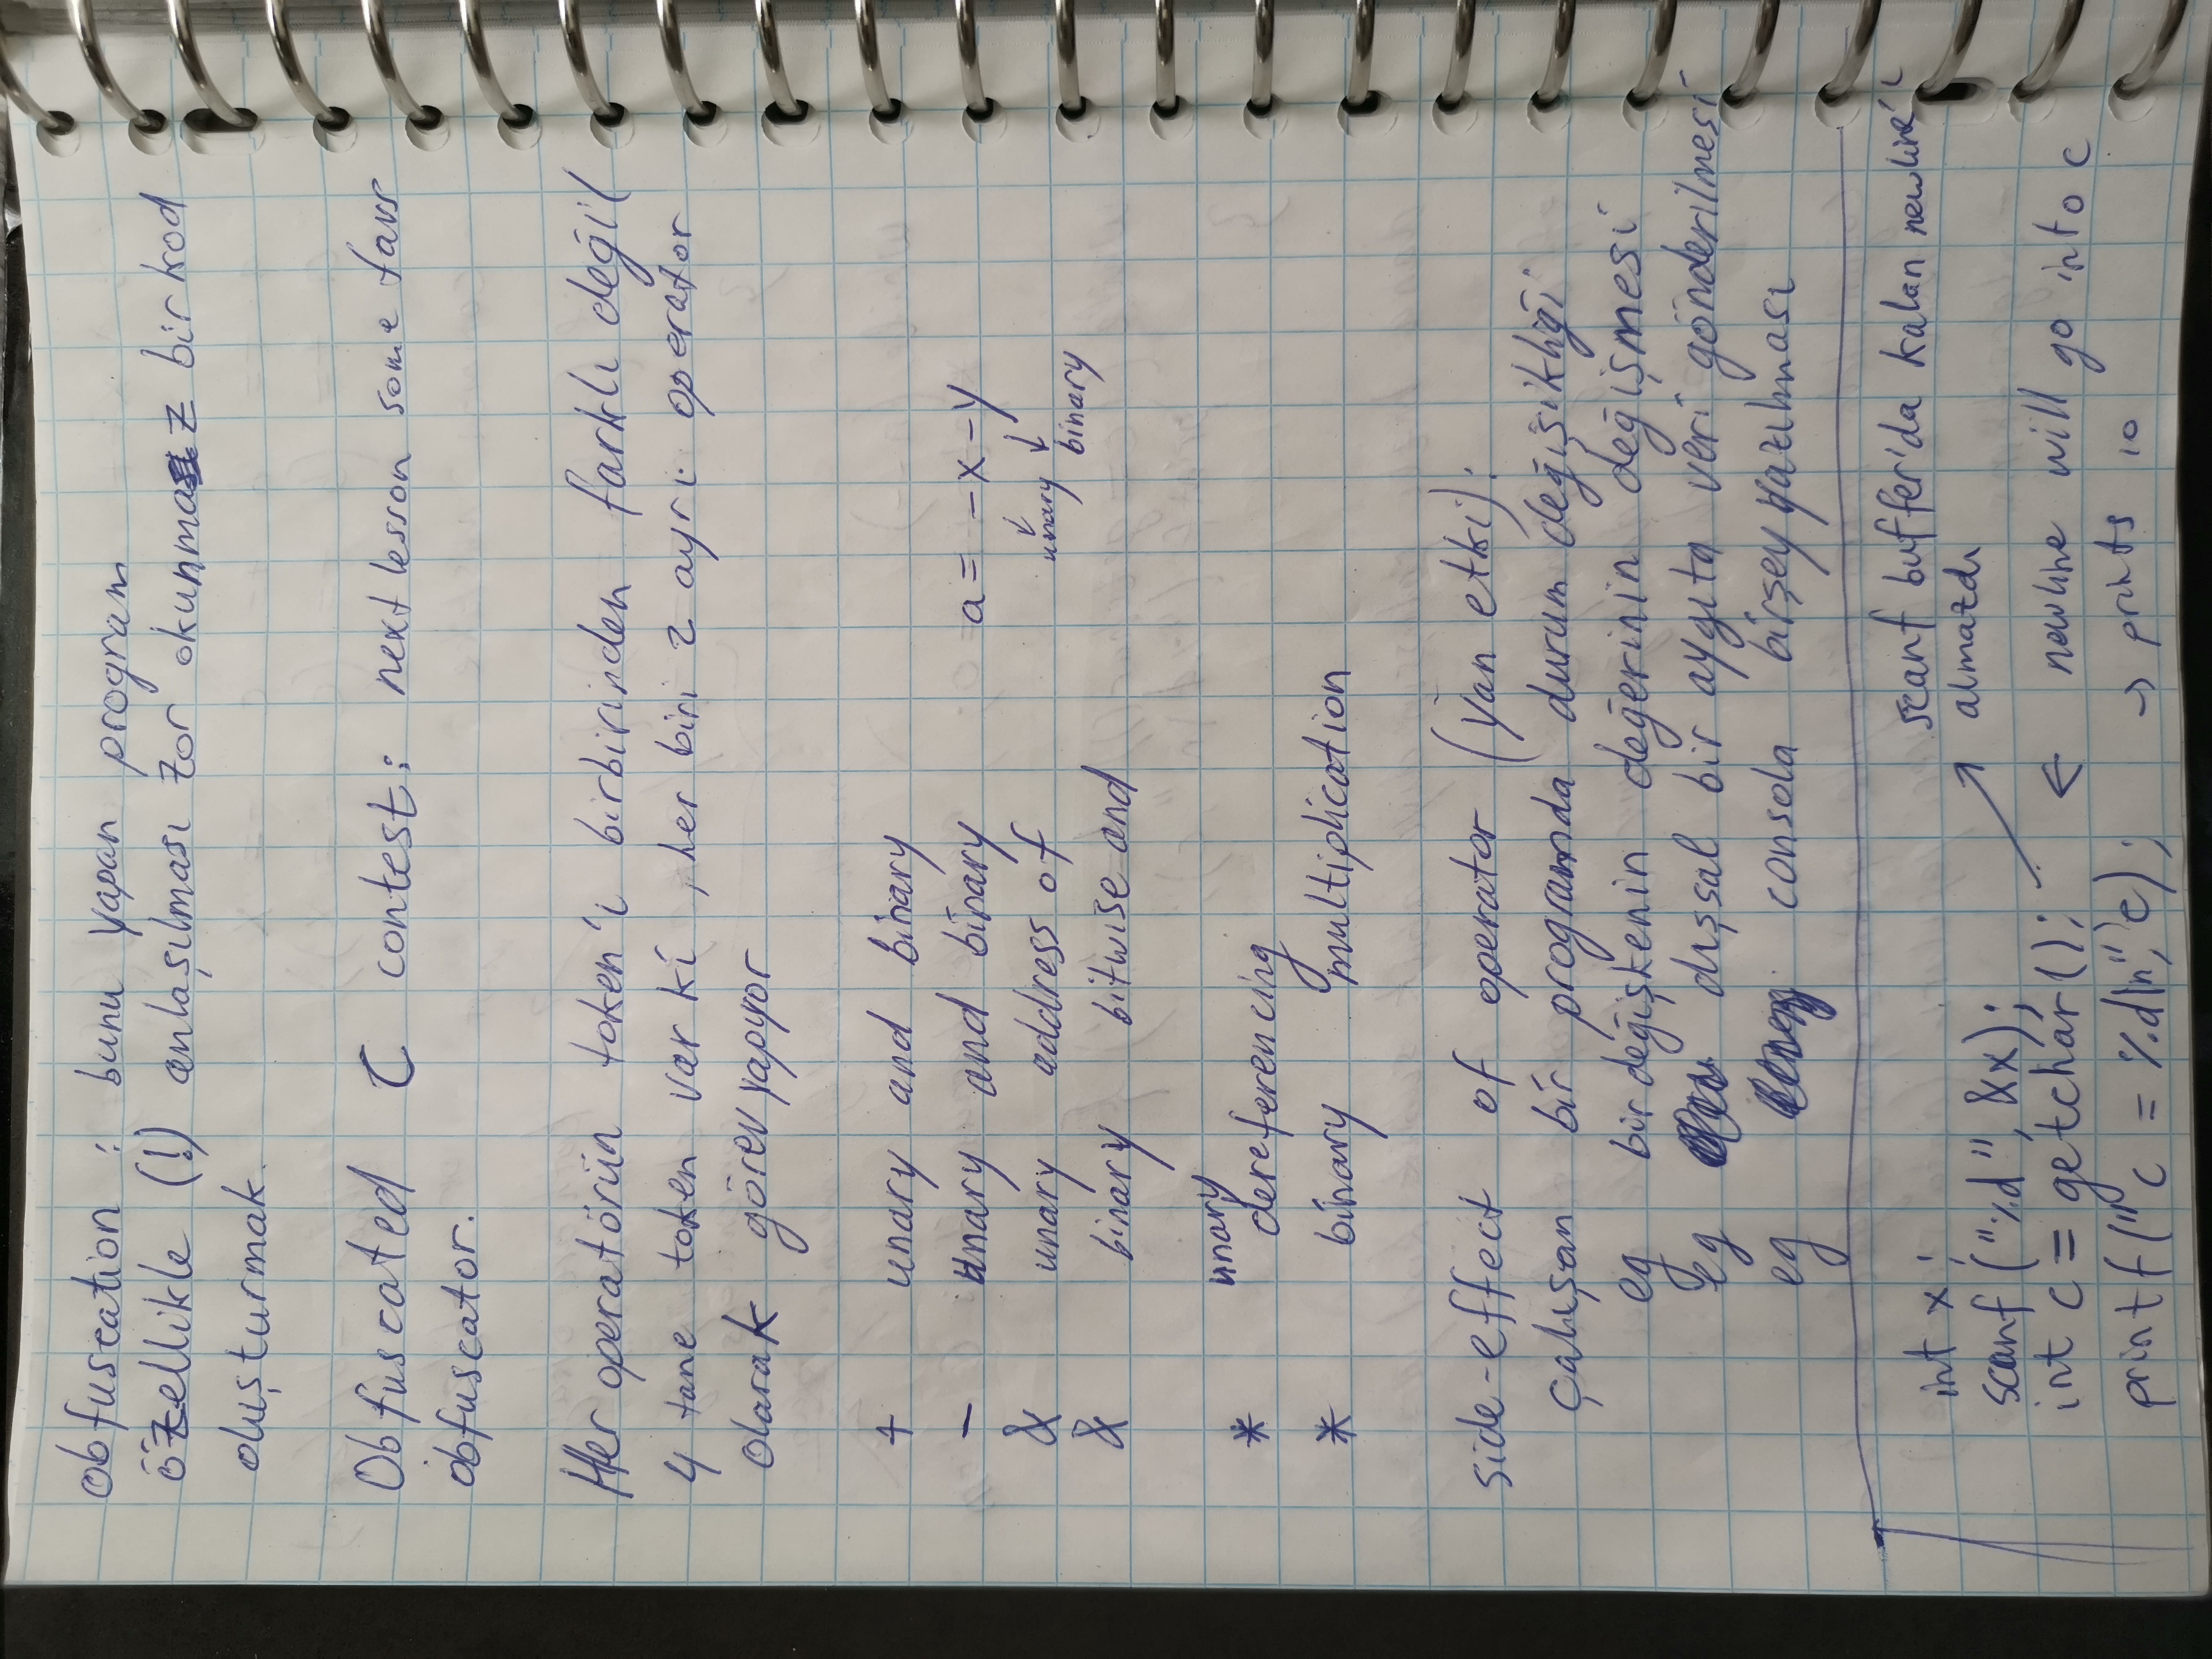 obfuscation : bunu yapan program
özellikle (!) anlaşılması zor okunmaz bir kod
oluşturmak.
Obfuscated C contest: next lesson some favs
obfuscator.
Her operatörün token'ı birbirinden farklı değil
4 tane token var ki, her biri 2 ayrı operator
olarak görev yapıyor
+ unary and binary
- unary and binary a = -x -y
& unary address of ↓ unary ↓ binary
& binary bitwise and
unary
* dereferencing
* binary multiplication
side-effect of operator (yan etki):
çalışan bir programda durum değişikliği
eg bir değişkenin değerinin değişmesi
eg dışsal bir aygıta veri gönderilmesi
eg consola birşey yazılması
scanf buffer'da kalan newline'ı
almazdı
int x;
scanf ("%d", &x);
int c = getchar(); ← newline will go into c
printf(" c = %d\n", c); → prints 10